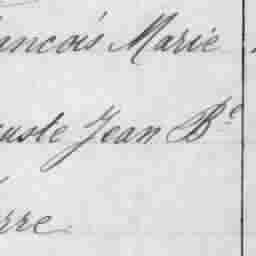 ancois Marie
uste Jean Bte
rre